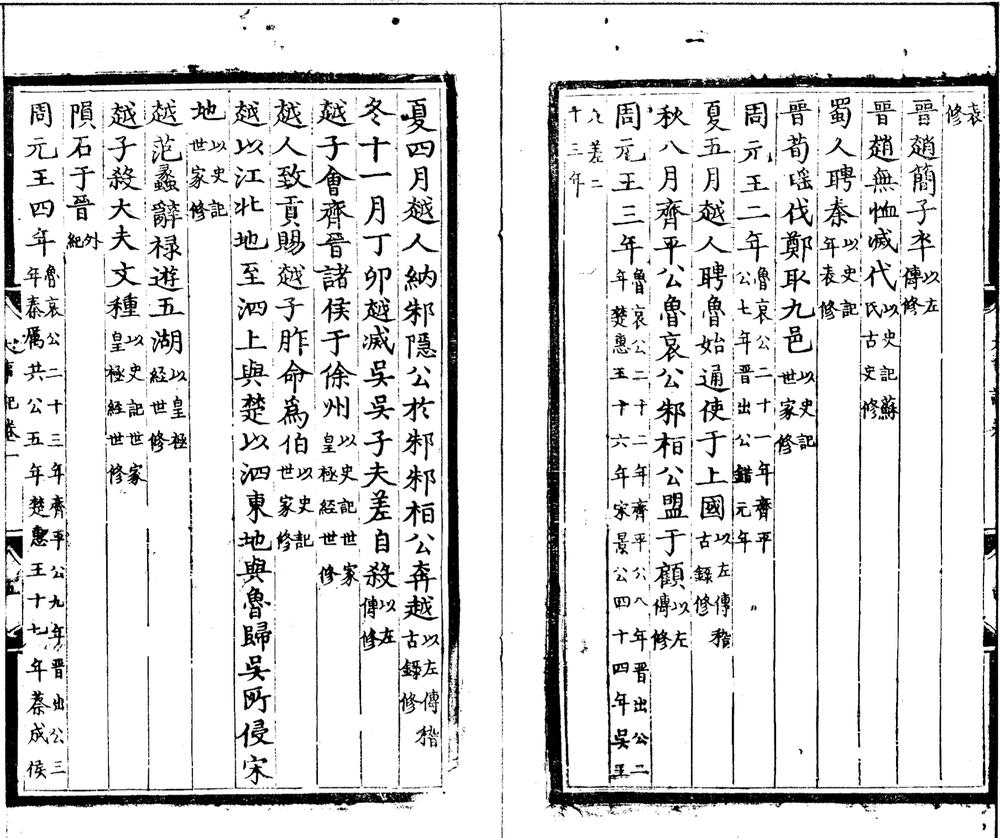 表修
晉趙簡子卒以左傳修
晉趙無恤滅代以史記蘇氏古史修
蜀人聘秦以史記年表修
晉荀瑶伐鄭取九邑以史記世家修
周元王二年魯哀公二十一年齊平公七年晉出公錯元年
夏五月越人聘魯始通使于上國以左傳稽古錄修
秋八月齊平公魯哀公邾柏公盟于顧以左傳修
周元王三年魯哀公二十二年齊平公八年晉出公二年楚惠王十六年宋景公四十四年吳王
夫差二十三年
夏四月越人納邾隱公於邾邾柏公奔越以左傳稽古錄修
冬十一月丁卯越滅吳吳子夫差自殺以左傳修
越子會齊晉諸侯于徐州以史記世家皇極經世修
越人致貢賜越子胙命為伯以史記世家修
越以江北地至泗上與楚以泗東地與魯歸吳所侵宋
地以史記世家修
越范蠡辭祿遊五湖以皇極經世修
越子殺大夫文種以史記世家皇極經世修
隕石于晉外紀
周元王四年魯哀公二十三年齊平公九年晉出公三年秦厲共公五年楚惠王十七年蔡成侯
事記卷一
五